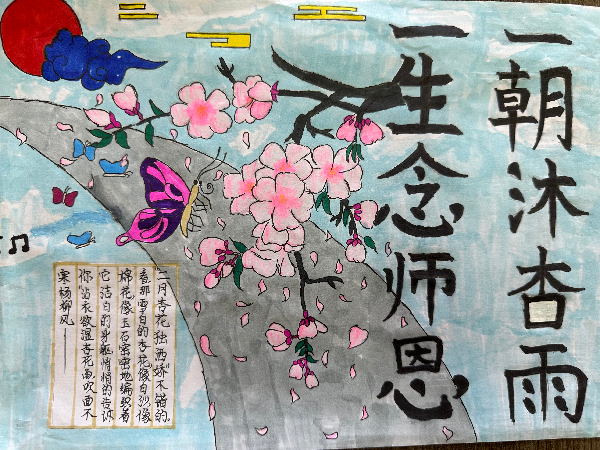 一朝沐杏雨
一生念师恩
二月杏花独洒娇不错的
春那雪白的杏花像白沙像
棉花像玉石密密地编织着
它洁白的身躯悄悄的告诉
你沾衣欲湿杏花雨吹面不
寒杨柳风